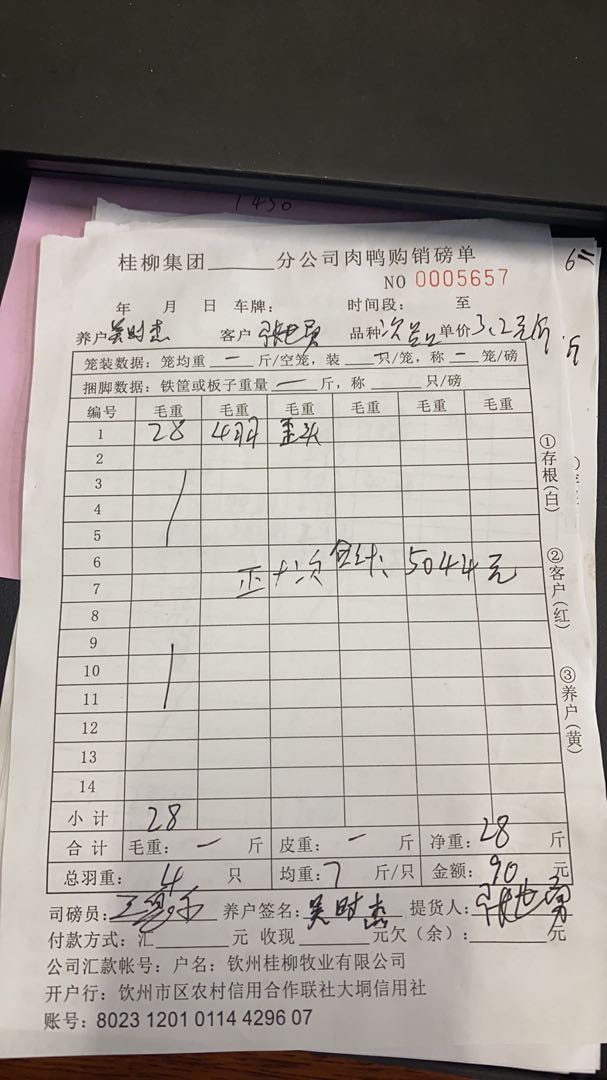 1450
桂柳集团______分公司肉鸭购销磅单
NO 0005657
年 月 日 车牌： 时间段： 至
养户 吴时杰 客户 品种 次品 单价 3.2元/斤
笼装数据：笼均重 一 斤/空笼，装 一 只/笼，称 一 笼/磅
捆脚数据：铁筐或板子重量 一 斤，称____只/磅
编号 毛重 毛重 毛重 毛重 毛重 毛重
1 28 4羽 歪头
2
3
4
5
6
正+次合计：5044元
7
8
9
10
11
12
13
14
小计 28
合计 毛重： 一 斤 皮重： 一 斤 净重：28 斤
总羽重： 4 只 均重：7 斤/只 金额：90 元
司磅员： 养户签名：吴时杰 提货人：
付款方式：汇______元 收现______元欠（余）：______元
公司汇款帐号：户名：钦州桂柳牧业有限公司
开户行：钦州市区农村信用合作联社大垌信用社
账号：8023 1201 0114 4296 07
①存根（白）
②客户（红）
③养户（黄）